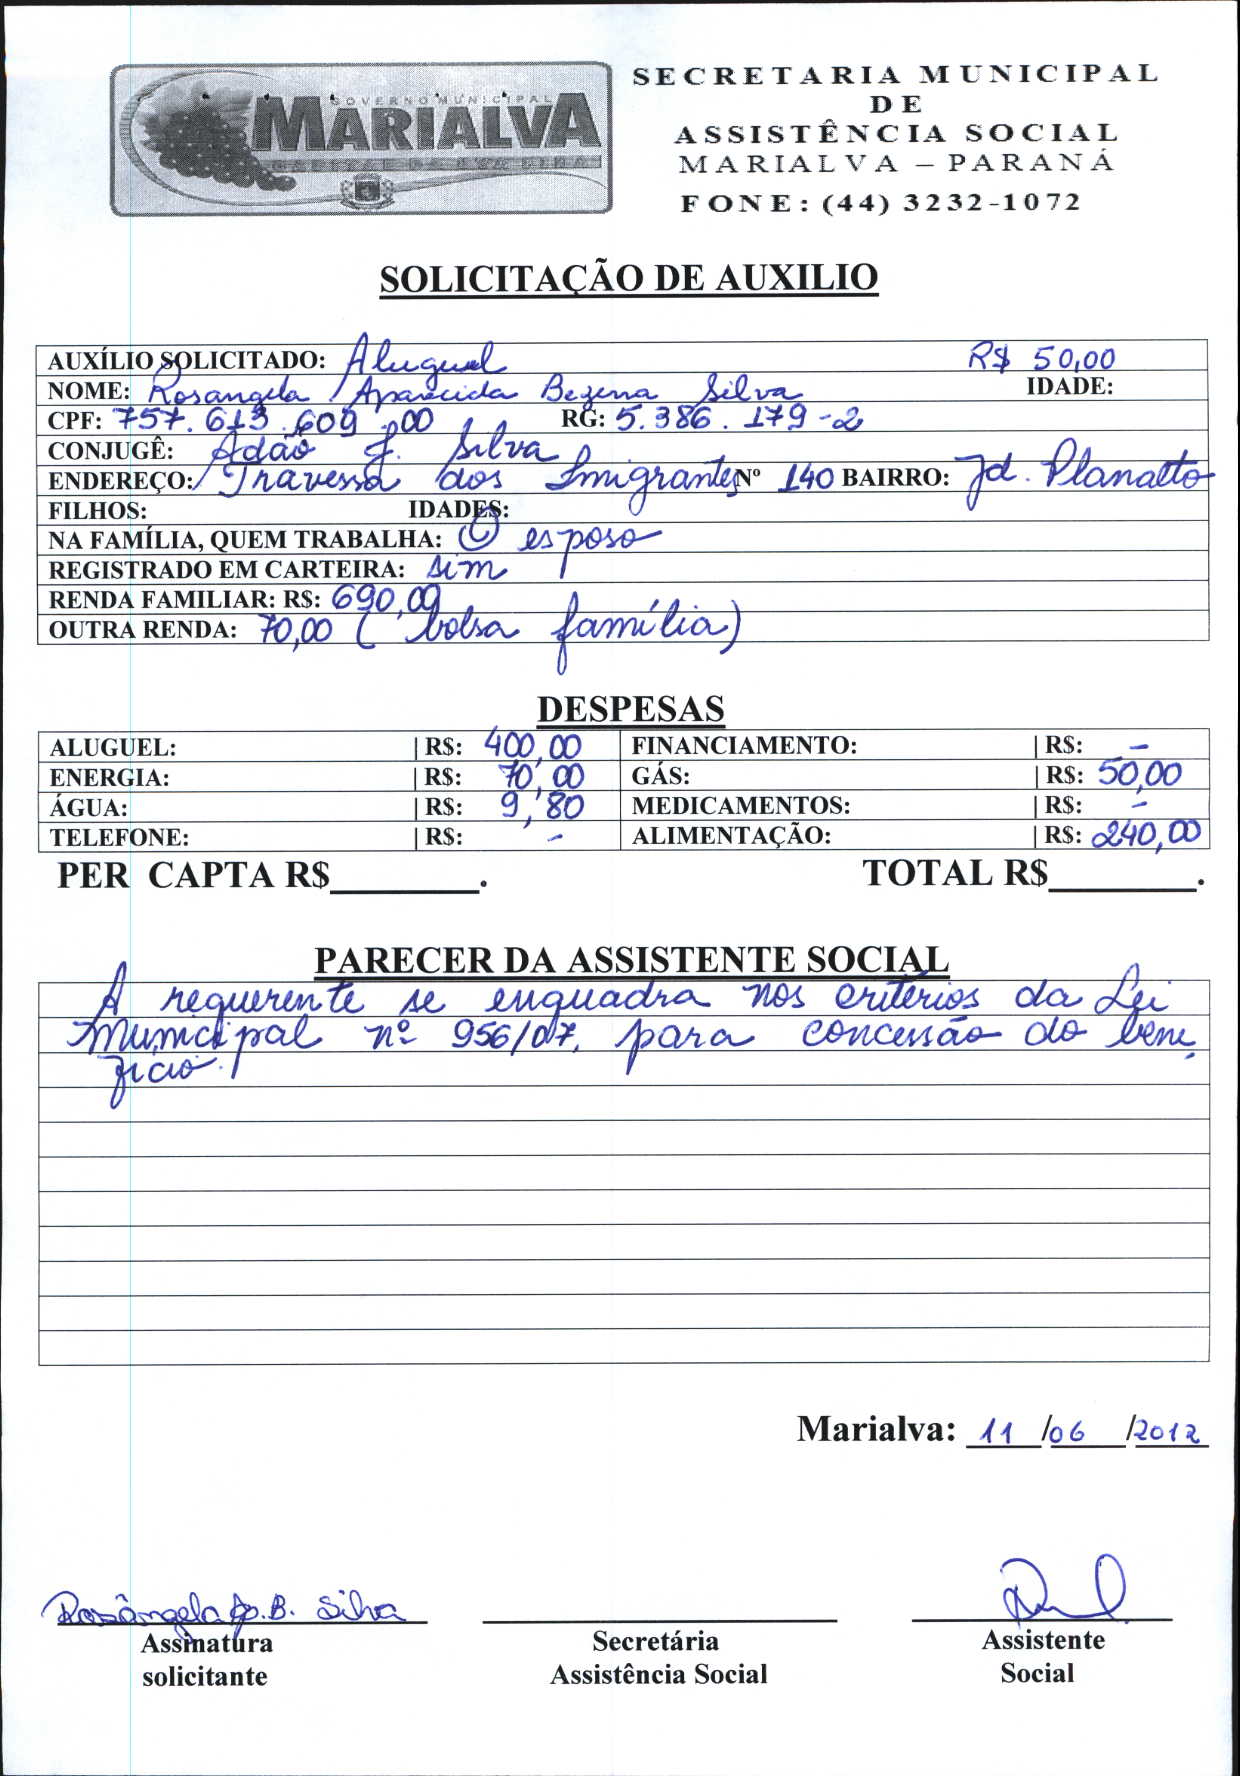 GOVERNO MUNICIPAL
MARIALVA
CAPITAL DA UVA FINA
SECRETARIA MUNICIPAL
DE
ASSISTÊNCIA SOCIAL
MARIALVA – PARANÁ
FONE: (44) 3232-1072
SOLICITAÇÃO DE AUXILIO
AUXÍLIO SOLICITADO: Aluguel R$ 50,00
NOME: Rosangela Aparecida Bezerra Silva IDADE:
CPF: 757.613.609-00 RG: 5.386.179-2
CONJUGÊ: Adão J. Silva
ENDEREÇO: Travessa dos Imigrantes Nº 140 BAIRRO: Jd. Planalto
FILHOS: IDADES:
NA FAMÍLIA, QUEM TRABALHA: O esposo
REGISTRADO EM CARTEIRA: sim
RENDA FAMILIAR: R$: 690,00
OUTRA RENDA: 70,00 (bolsa família)
DESPESAS
ALUGUEL: | R$: 400,00 FINANCIAMENTO: | R$: -
ENERGIA: | R$: 70,00 GÁS: | R$: 50,00
ÁGUA: | R$: 9,80 MEDICAMENTOS: | R$: -
TELEFONE: | R$: - ALIMENTAÇÃO: | R$: 240,00
PER CAPTA R$________. TOTAL R$________.
PARECER DA ASSISTENTE SOCIAL
A requerente se enquadra nos critérios da Lei
Municipal nº 956/07, para concessão do bene
fício.
Marialva: 11/06/2012
Rosângela Ap. B. Silva
Assinatura Secretária Assistente
solicitante Assistência Social Social